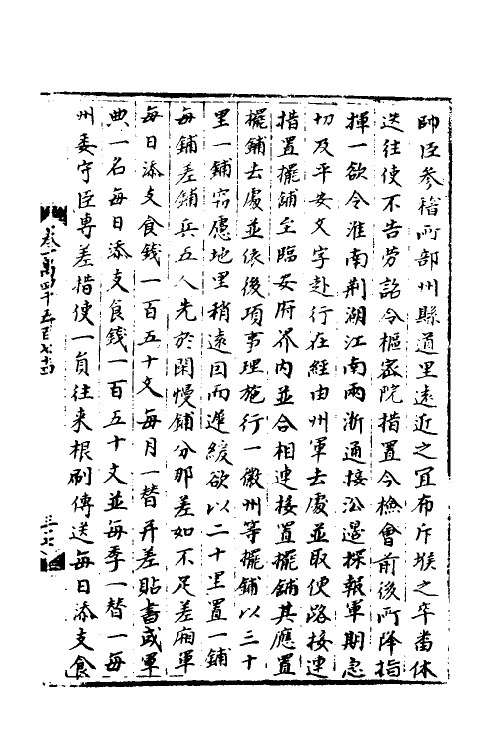 帥臣參稽所部州縣道里遠近之宜布斥堠之卒當休
迭往使不告勞詔令樞密院措置今檢會前後所降指
揮一欲令淮南荆湖江南兩浙通接沿邊探報軍期急
切及平安文字赴行在經由州軍去處並取便路接連
措置擺鋪至臨安府界內並合相連接置擺鋪其應置
擺鋪去處並依後項事理施行一徽州等擺鋪以三十
里一鋪竊慮地里稍遠因而遲緩欲以二十里置一鋪
每鋪差鋪兵五人先於閑慢鋪分那差如不足差廂軍
每日添支食錢一百五十文每月一替幷差貼書或軍
典一名每日添支食錢一百五十文並每季一替一每
州委守臣專差措使一員往來根刷傳送每日添支食
卷一萬四千五百七十四